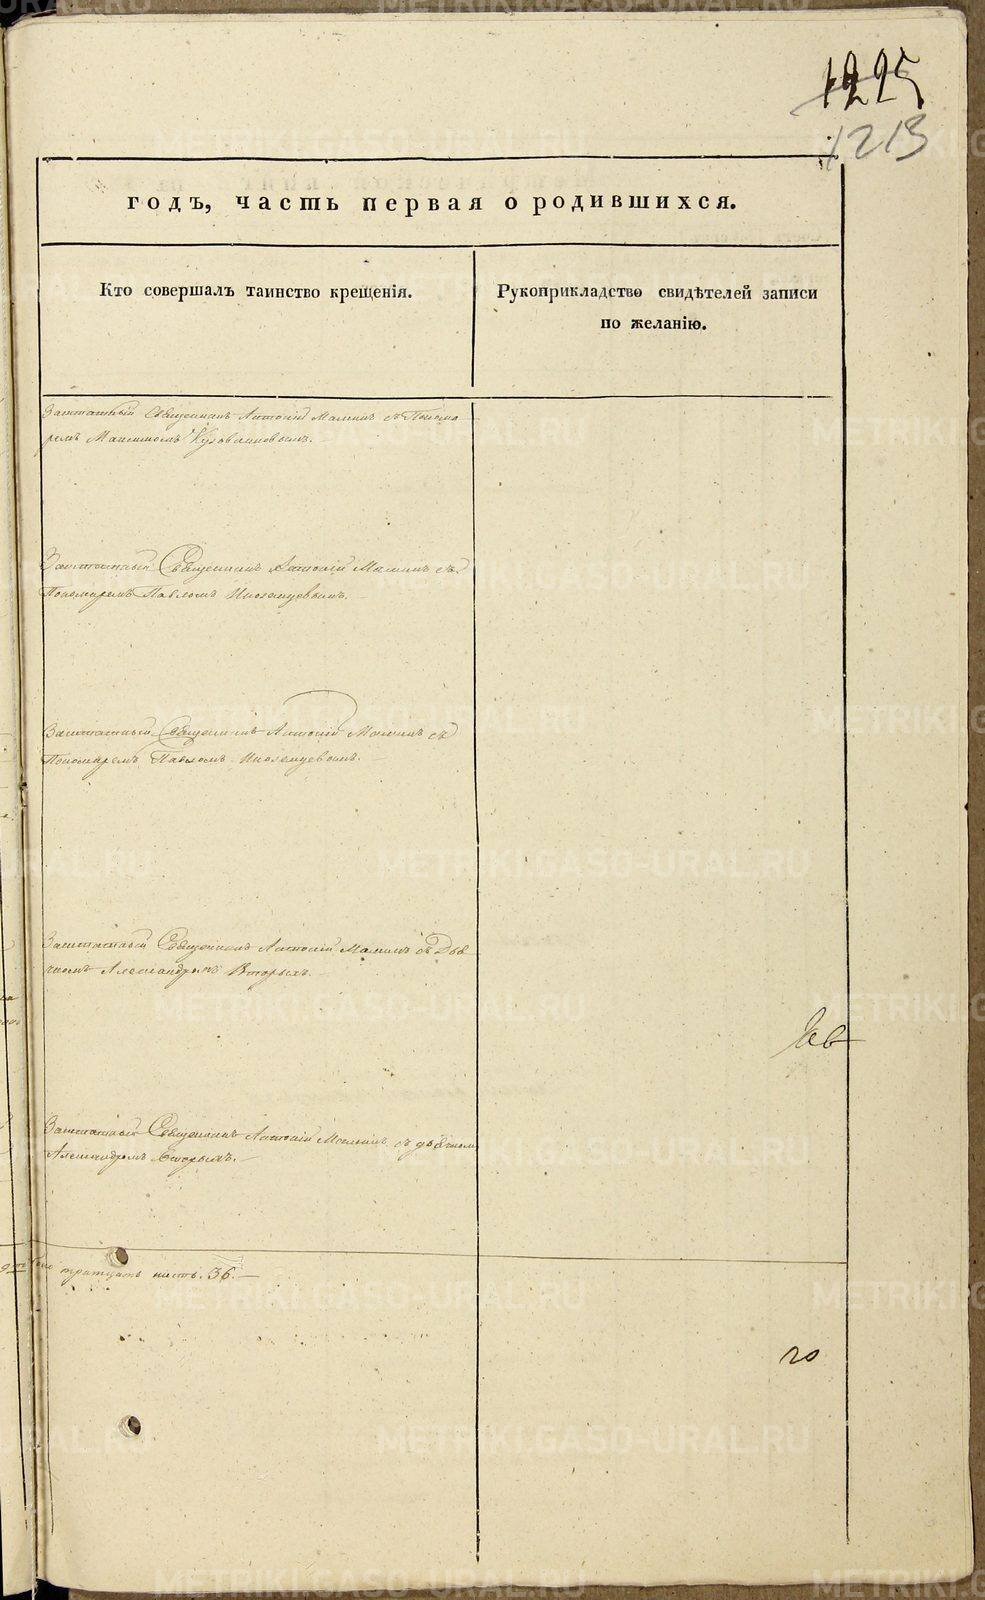 1225
1213
годъ, часть первая о родившихся.
Кто совершалъ таинство крещенія.
Рукоприкладство свидѣтелей записи
по желанію.
Заштатный Священникъ Антоній Маминъ съ Понома
ремъ Максимомъ
Заштатный Священникъ Антоній Маминъ съ
Пономаремъ Павломъ Иноземцевымъ.
Заштатный Священникъ Антоній Маминъ съ
Пономаремъ Павломъ Иноземцевымъ.
Заштатный Священникъ Антоній Маминъ съ Дья
комъ Александромъ Вторыхъ.
Заштатный Священникъ Антоній Маминъ съ дьячкомъ
Александромъ Вторыхъ.
тритцать шесть. 36.
го
METRIKI.GASO-URAL.RU